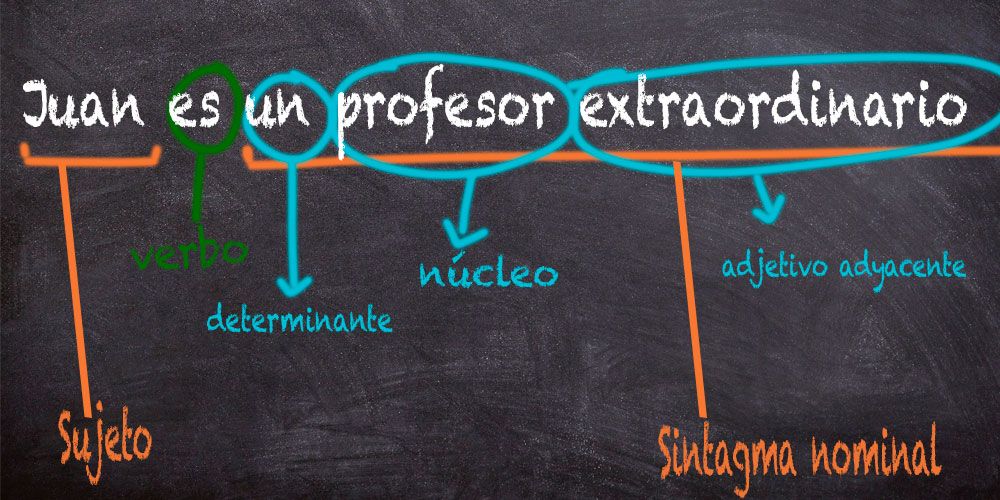 Juan es un profesor extraordinario
verbo
determinante
núcleo
adjetivo adyacente
Sujeto
Sintagma nominal